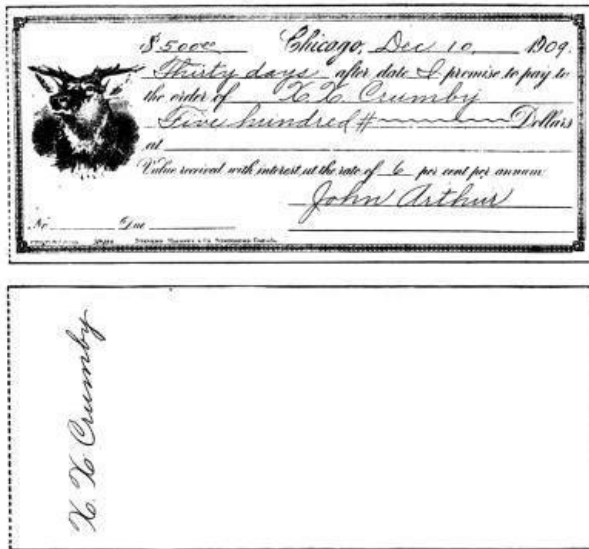 $500.00 Chicago, Dec 10, 1909.
Thirty days after date I promise to pay to
the order of X.X. Crumby
Five hundred # Dollars
at
Value received with interest at the rate of 6 per cent per annum
John Arthur
No. Due
X. X. Crumby